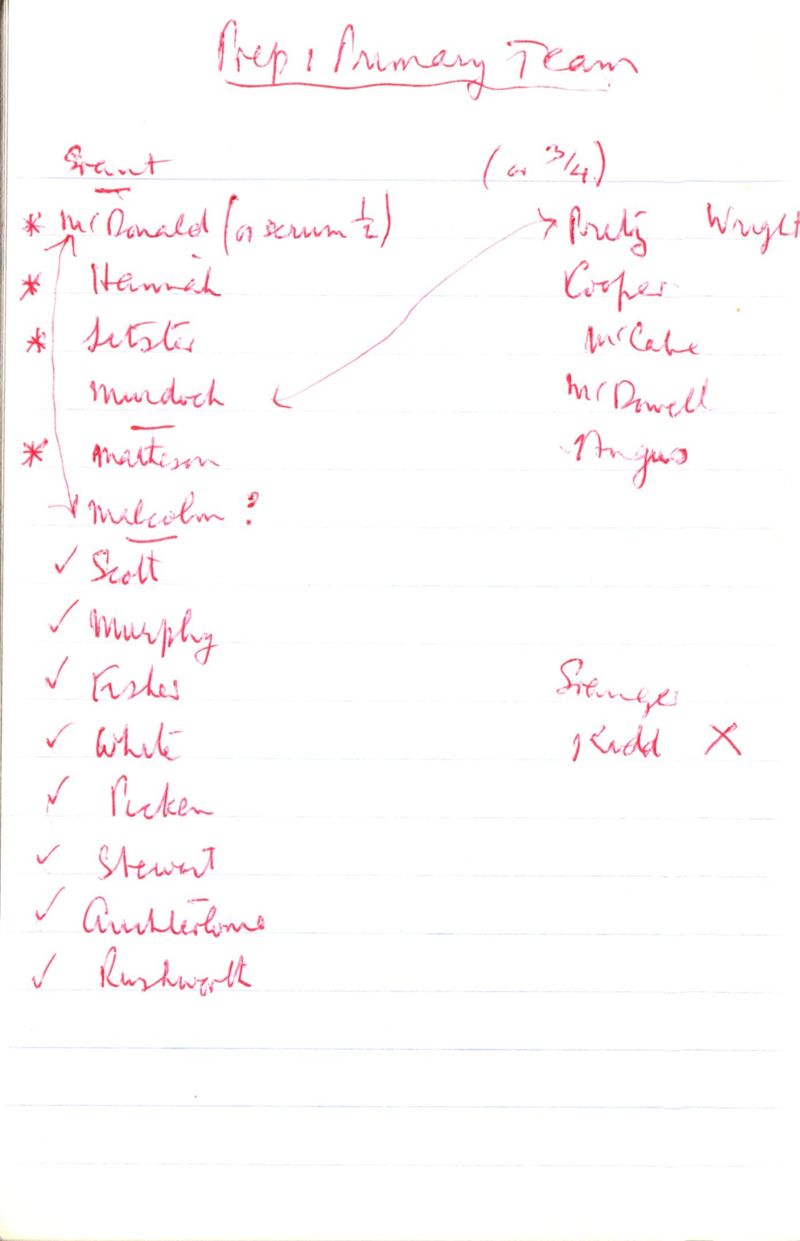 Prep 1 Primary Team
Grant (or 3/4)
* McDonald (or scrum 1/2) Wright
* Hannah Cooper
* McCabe
Murdoch McDowell
* Matheson Angus
Malcolm ?
✓ Scott
✓ Murphy
✓ Fisher
✓ White Kidd X
✓ Picken
✓ Stewart
✓ Auchterlonie
✓ Rushworth